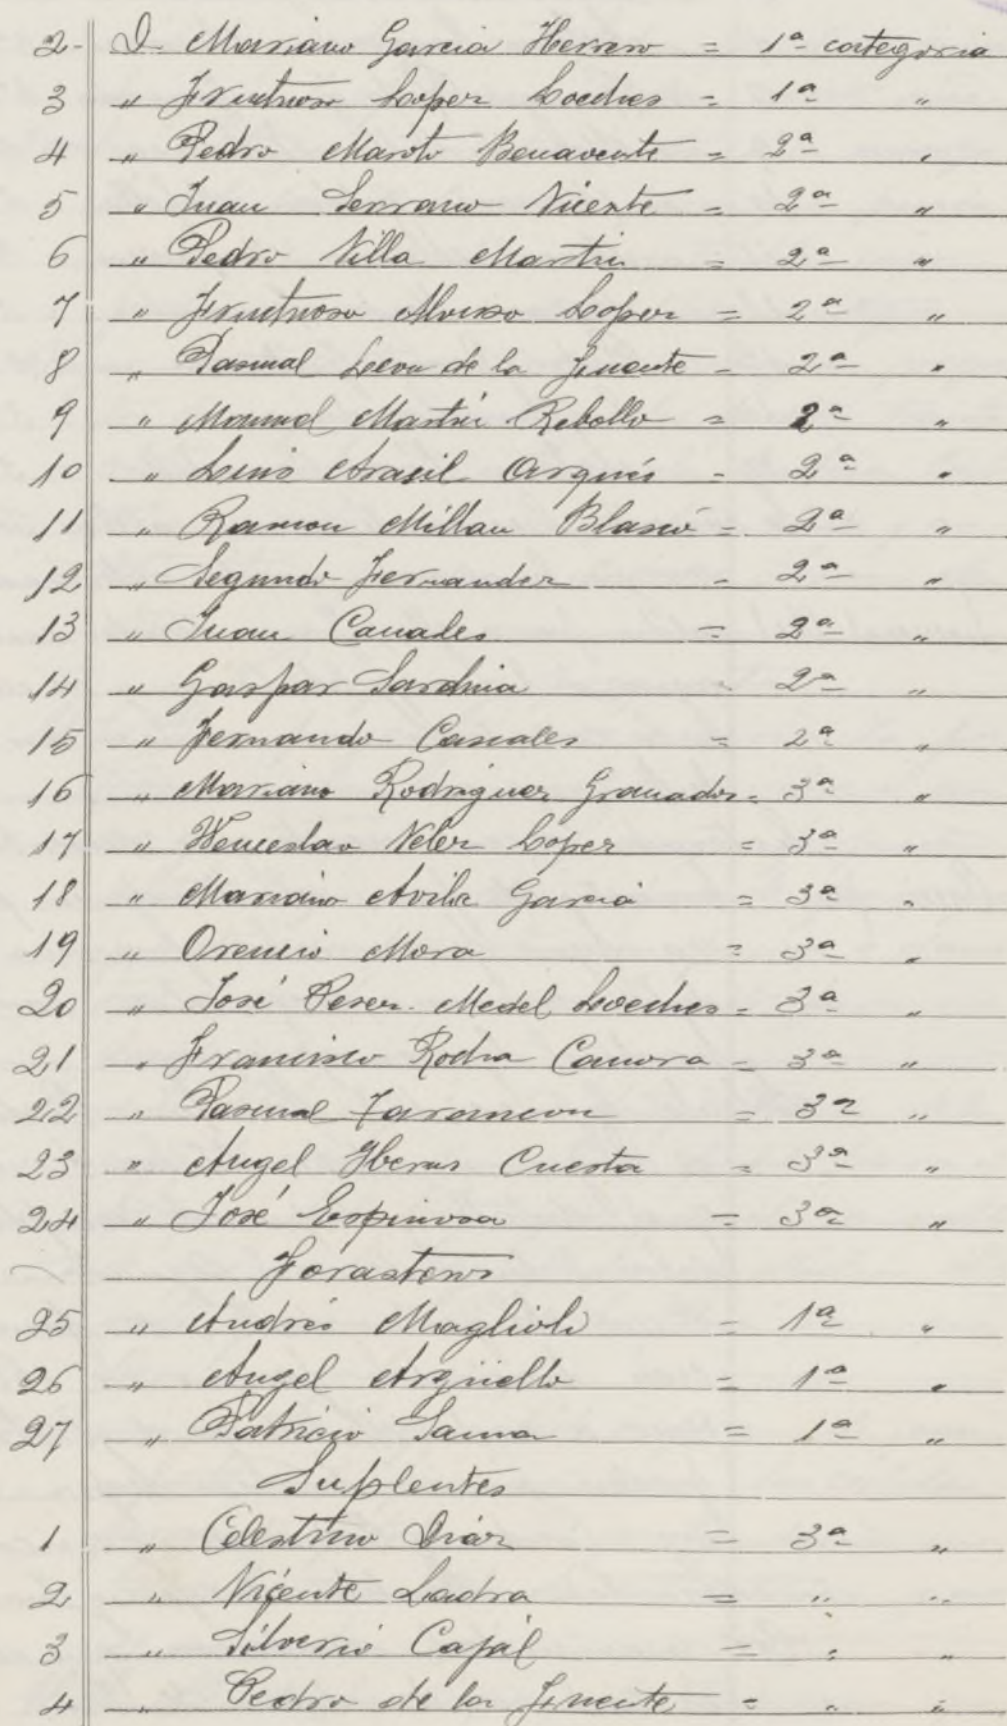 2- D. Mariano Garcia Herrero = 1ª categoria
3 " Fructuoso Loper Loeches = 1ª "
4 " Pedro Maroto Benavente = 2ª "
5 " Juan Serrano Vicente = 2ª "
6 " Pedro Villa Martin = 2ª "
7 " Fructuoso Alonso Loper = 2ª "
8 " Pascual de la Fuente = 2ª "
9 " Manuel Martin Rebollo = 2ª "
10 " Luis Arasil Arqués = 2ª "
11 " Ramon Millan Blasco = 2ª "
12 " Segundo Fernander = 2ª "
13 " Juan Canales = 2ª "
14 " Gaspar Sardinia = 2ª "
15 " Fernando Canales = 2ª "
16 " Mariano Rodriguer Granados = 3ª "
17 " Wenceslao Veler Loper = 3ª "
18 " Mariano Avila Garcia = 3ª "
19 " Orencio Mora = 3ª "
20 " José Medel Loeches = 3ª "
21 " Francisco Rocha Camora = 3ª "
22 " Pascual Tarancon = 3ª "
23 " Angel Cuesta = 3ª "
24 " José Espinosa = 3ª "
Forasteros
25 " Andrés Maglioli = 1ª "
26 " Angel Argüello = 1ª "
27 " Patricio = 1ª "
Suplentes
1 " Celestino Diár = 3ª "
2 " Vicente Ladra = " "
3 " Silverio Cajal = " "
4 " Pedro de la Fuente = " "